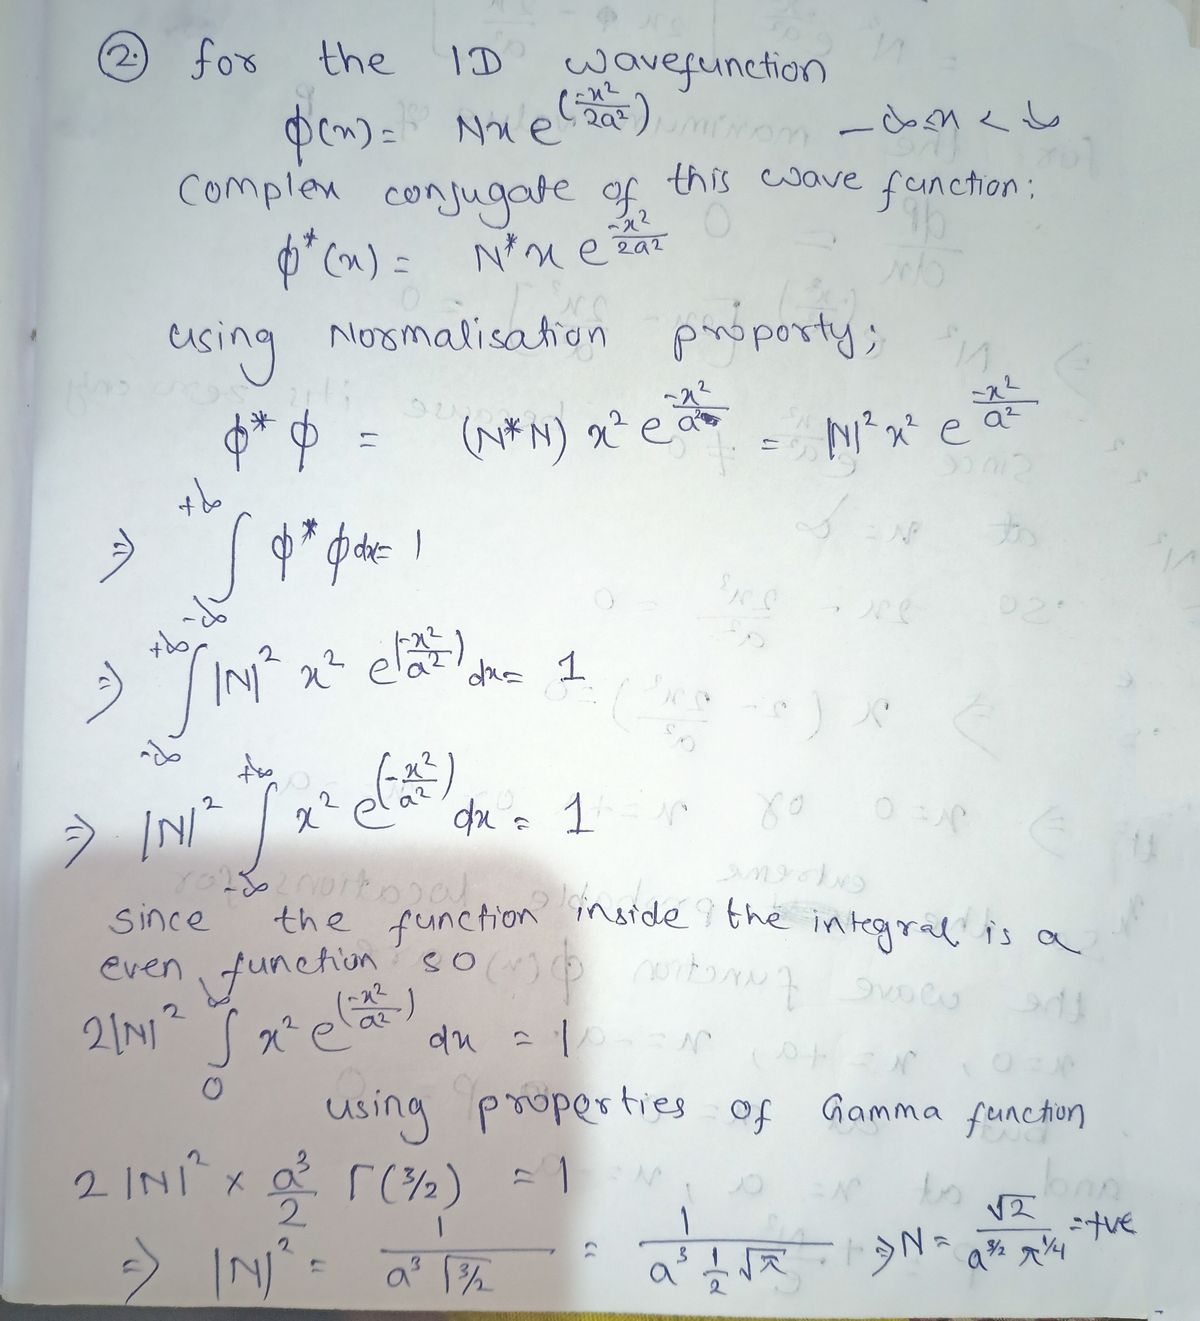 ② for the 1D wavefunction
ϕ(x) = Nx e^(-x²/2a²) -∞ ≤ x < ∞
Complex conjugate of this wave function:
ϕ*(x) = N* x e^(-x²/2a²)
using Normalisation proporty;
ϕ* ϕ = (N*N) x² e^(-x²/a²) = |N|² x² e^(-x²/a²)
⇒ ∫_{-∞}^{+∞} ϕ* ϕ dx = 1
⇒ ∫_{-∞}^{+∞} |N|² x² e^(-x²/a²) dx = 1
⇒ |N|² ∫_{-∞}^{+∞} x² e^(-x²/a²) dx = 1
since the function inside the integral is a
even function so
2|N|² ∫_{0}^{∞} x² e^(-x²/a²) dx = 1
using properties of Gamma function
2 |N|² × a³/2 Γ(3/2) = 1
⇒ |N|² = 1/(a³ Γ3/2) = 1/(a³ 1/2 √π) ⇒ N = √2/(a^{3/2} π^{1/4}) = +ve